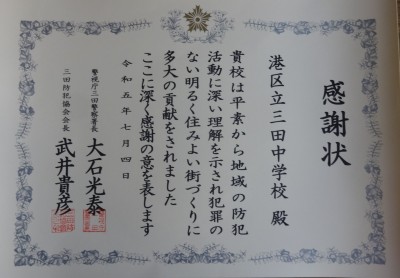 感謝状
港区立三田中学校 殿
貴校は平素から地域の防犯
活動に深い理解を示され犯罪の
ない明るく住みよい街づくりに
多大の貢献をされました
ここに深く感謝の意を表します
令和五年七月四日
警視庁三田警察署長 大石光泰
三田防犯協会会長 武井貴彦